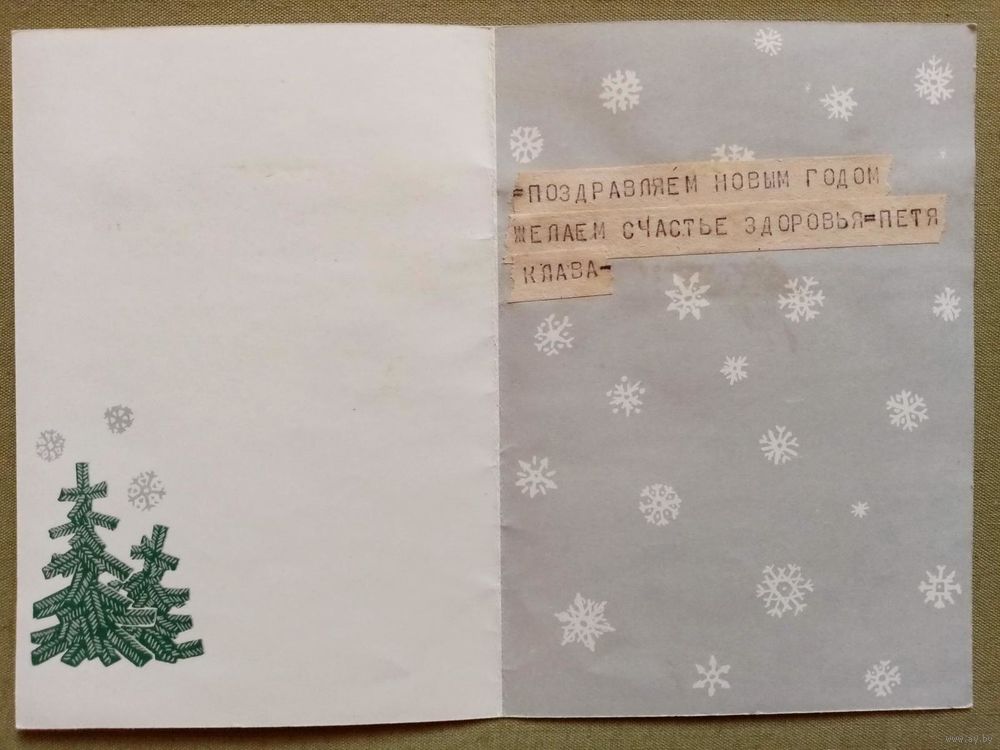 =ПОЗДРАВЛЯЕМ НОВЫМ ГОДОМ
ЖЕЛАЕМ СЧАСТЬЕ ЗДОРОВЬЯ=ПЕТЯ
КЛАВА-
www.ay.by